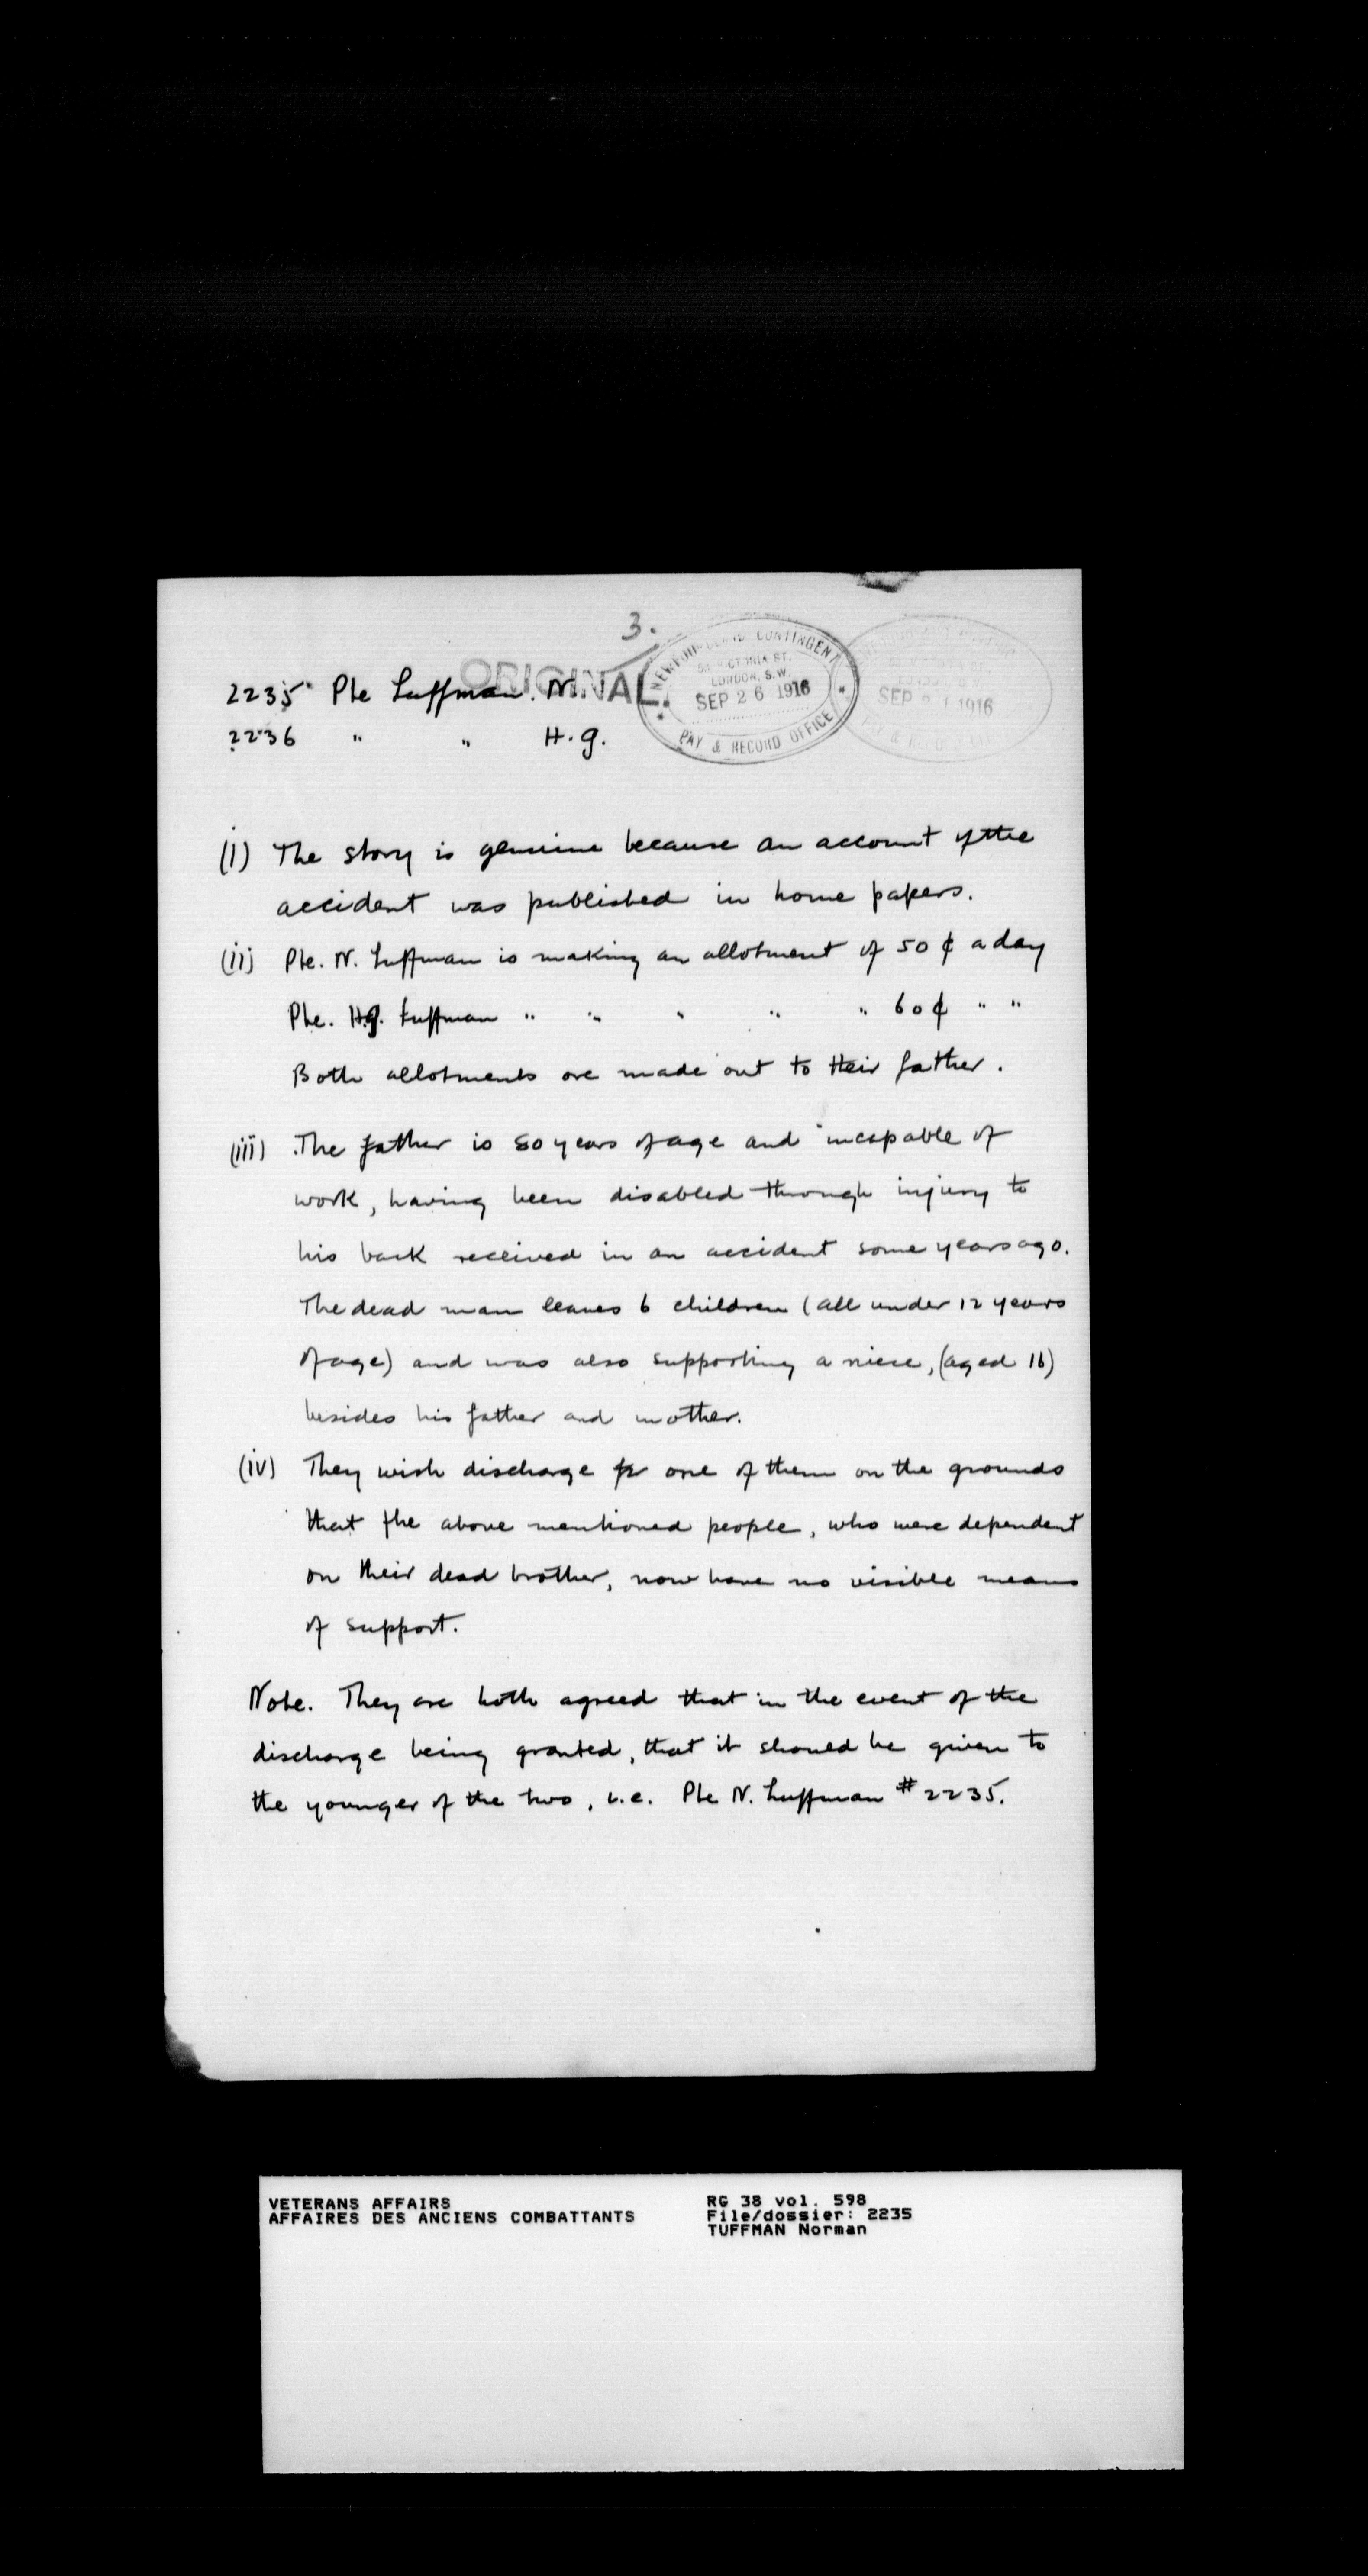 3.
ORIGINAL.
NEWFOUNDLAND CONTINGENT
58 VICTORIA ST.
LONDON, S.W.
SEP 26 1916
PAY & RECORD OFFICE
SEP 1 1916
2235 Pte Luffman. N.
2236 " " H.G.
(i) The story is genuine because an account of the
accident was published in home papers.
(ii) Pte. N. Luffman is making an allotment of 50 ¢ a day
Pte. H.G. Luffman " " " " " 60 ¢ " "
Both allotments are made out to their father.
(iii) The father is 80 years of age and incapable of
work, having been disabled through injury to
his back received in an accident some years ago.
The dead man leaves 6 children (all under 12 years
of age) and was also supporting a niece, (aged 16)
besides his father and mother.
(iv) They wish discharge for one of them on the grounds
that the above mentioned people, who were dependent
on their dead brother, now have no visible means
of support.
Note. They are both agreed that in the event of the
discharge being granted, that it should be given to
the younger of the two, i.e. Pte N. Luffman # 2235.
VETERANS AFFAIRS
AFFAIRES DES ANCIENS COMBATTANTS
RG 38 vol. 598
File/dossier: 2235
TUFFMAN Norman